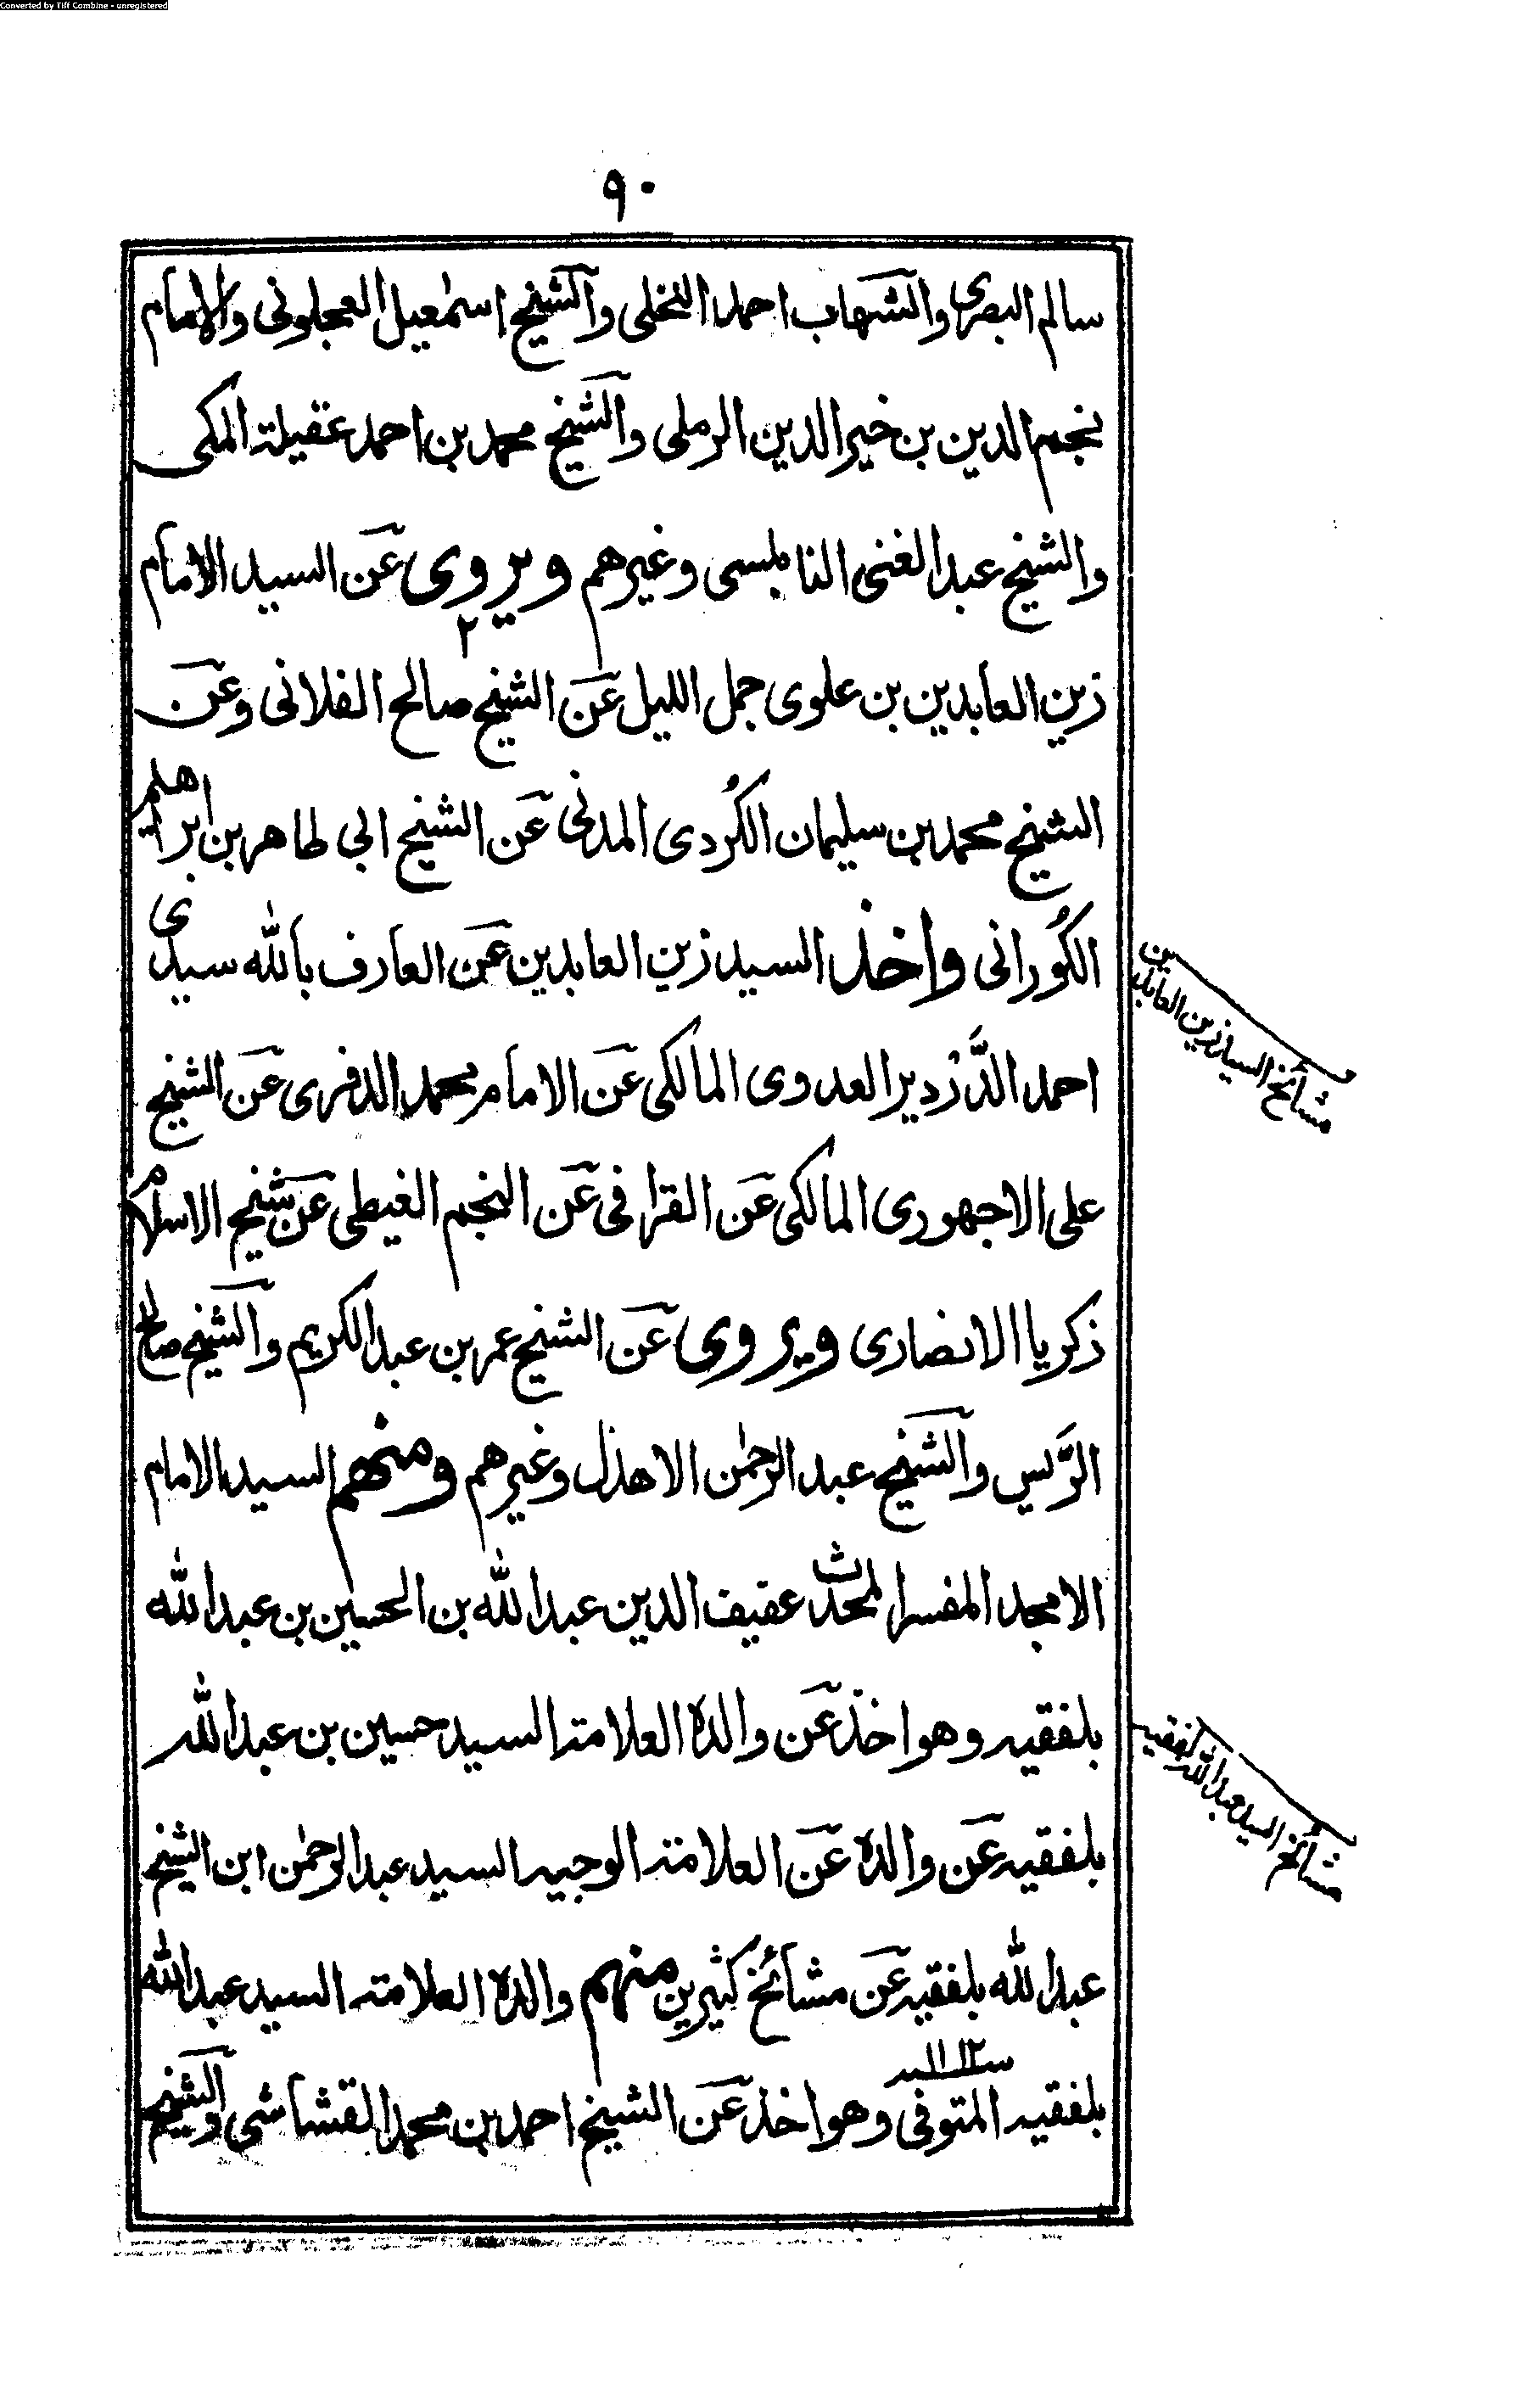 Converted by Tiff Combine - unregistered
٩٠
سالم البصرى والشهاب احمد النخلى والشيخ اسمٰعيل العجلونى والامام
نجم الدين بن خير الدين الرملى والشيخ محمد بن احمد عقيلة المكى
والشيخ عبد الغنى النابلسى وغيرهم ويروى عن السيد الامام
٢
زين العابدين بن علوى جمل الليل عن الشيخ صالح الفلانى وعن
الشيخ محمد بن سليمان الكُردى المدنى عن الشيخ ابى طاهر بن ابراهيم
الكُورانى واخذ السيد زين العابدين عن العارف بالله سيدى
مشائخ السيد زين العابدين
احمد الدَّرْدير العدوى المالكى عن الامام محمد الدفرى عن الشيخ
على الاجهورى المالكى عن القرافى عن النجم الغيطى عن شيخ الاسلام
ذكريا الانصارى ويروى عن الشيخ عمر بن عبد الكريم والشيخ صالح
الرَّيس والشيخ عبد الرحمٰن الاهذل وغيرهم ومنهم السيد الامام
الامجد المفسر المحدث عفيف الدين عبد الله بن الحسين بن عبد الله
بلفقيه وهو اخذ عن والده العلامة السيد حسين بن عبد الله
مشائخ السيد عبد الله بلفقيه
بلفقيه عن والده عن العلامة الوجيه السيد عبد الرحمٰن ابن الشيخ
عبد الله بلفقيه عن مشائخ كثيرين منهم والده العلامة السيد عبد الله
بلفقيه المتوفى سنة ١١١٢ وهو اخذ عن الشيخ احمد بن محمد القشاشى والشيخ